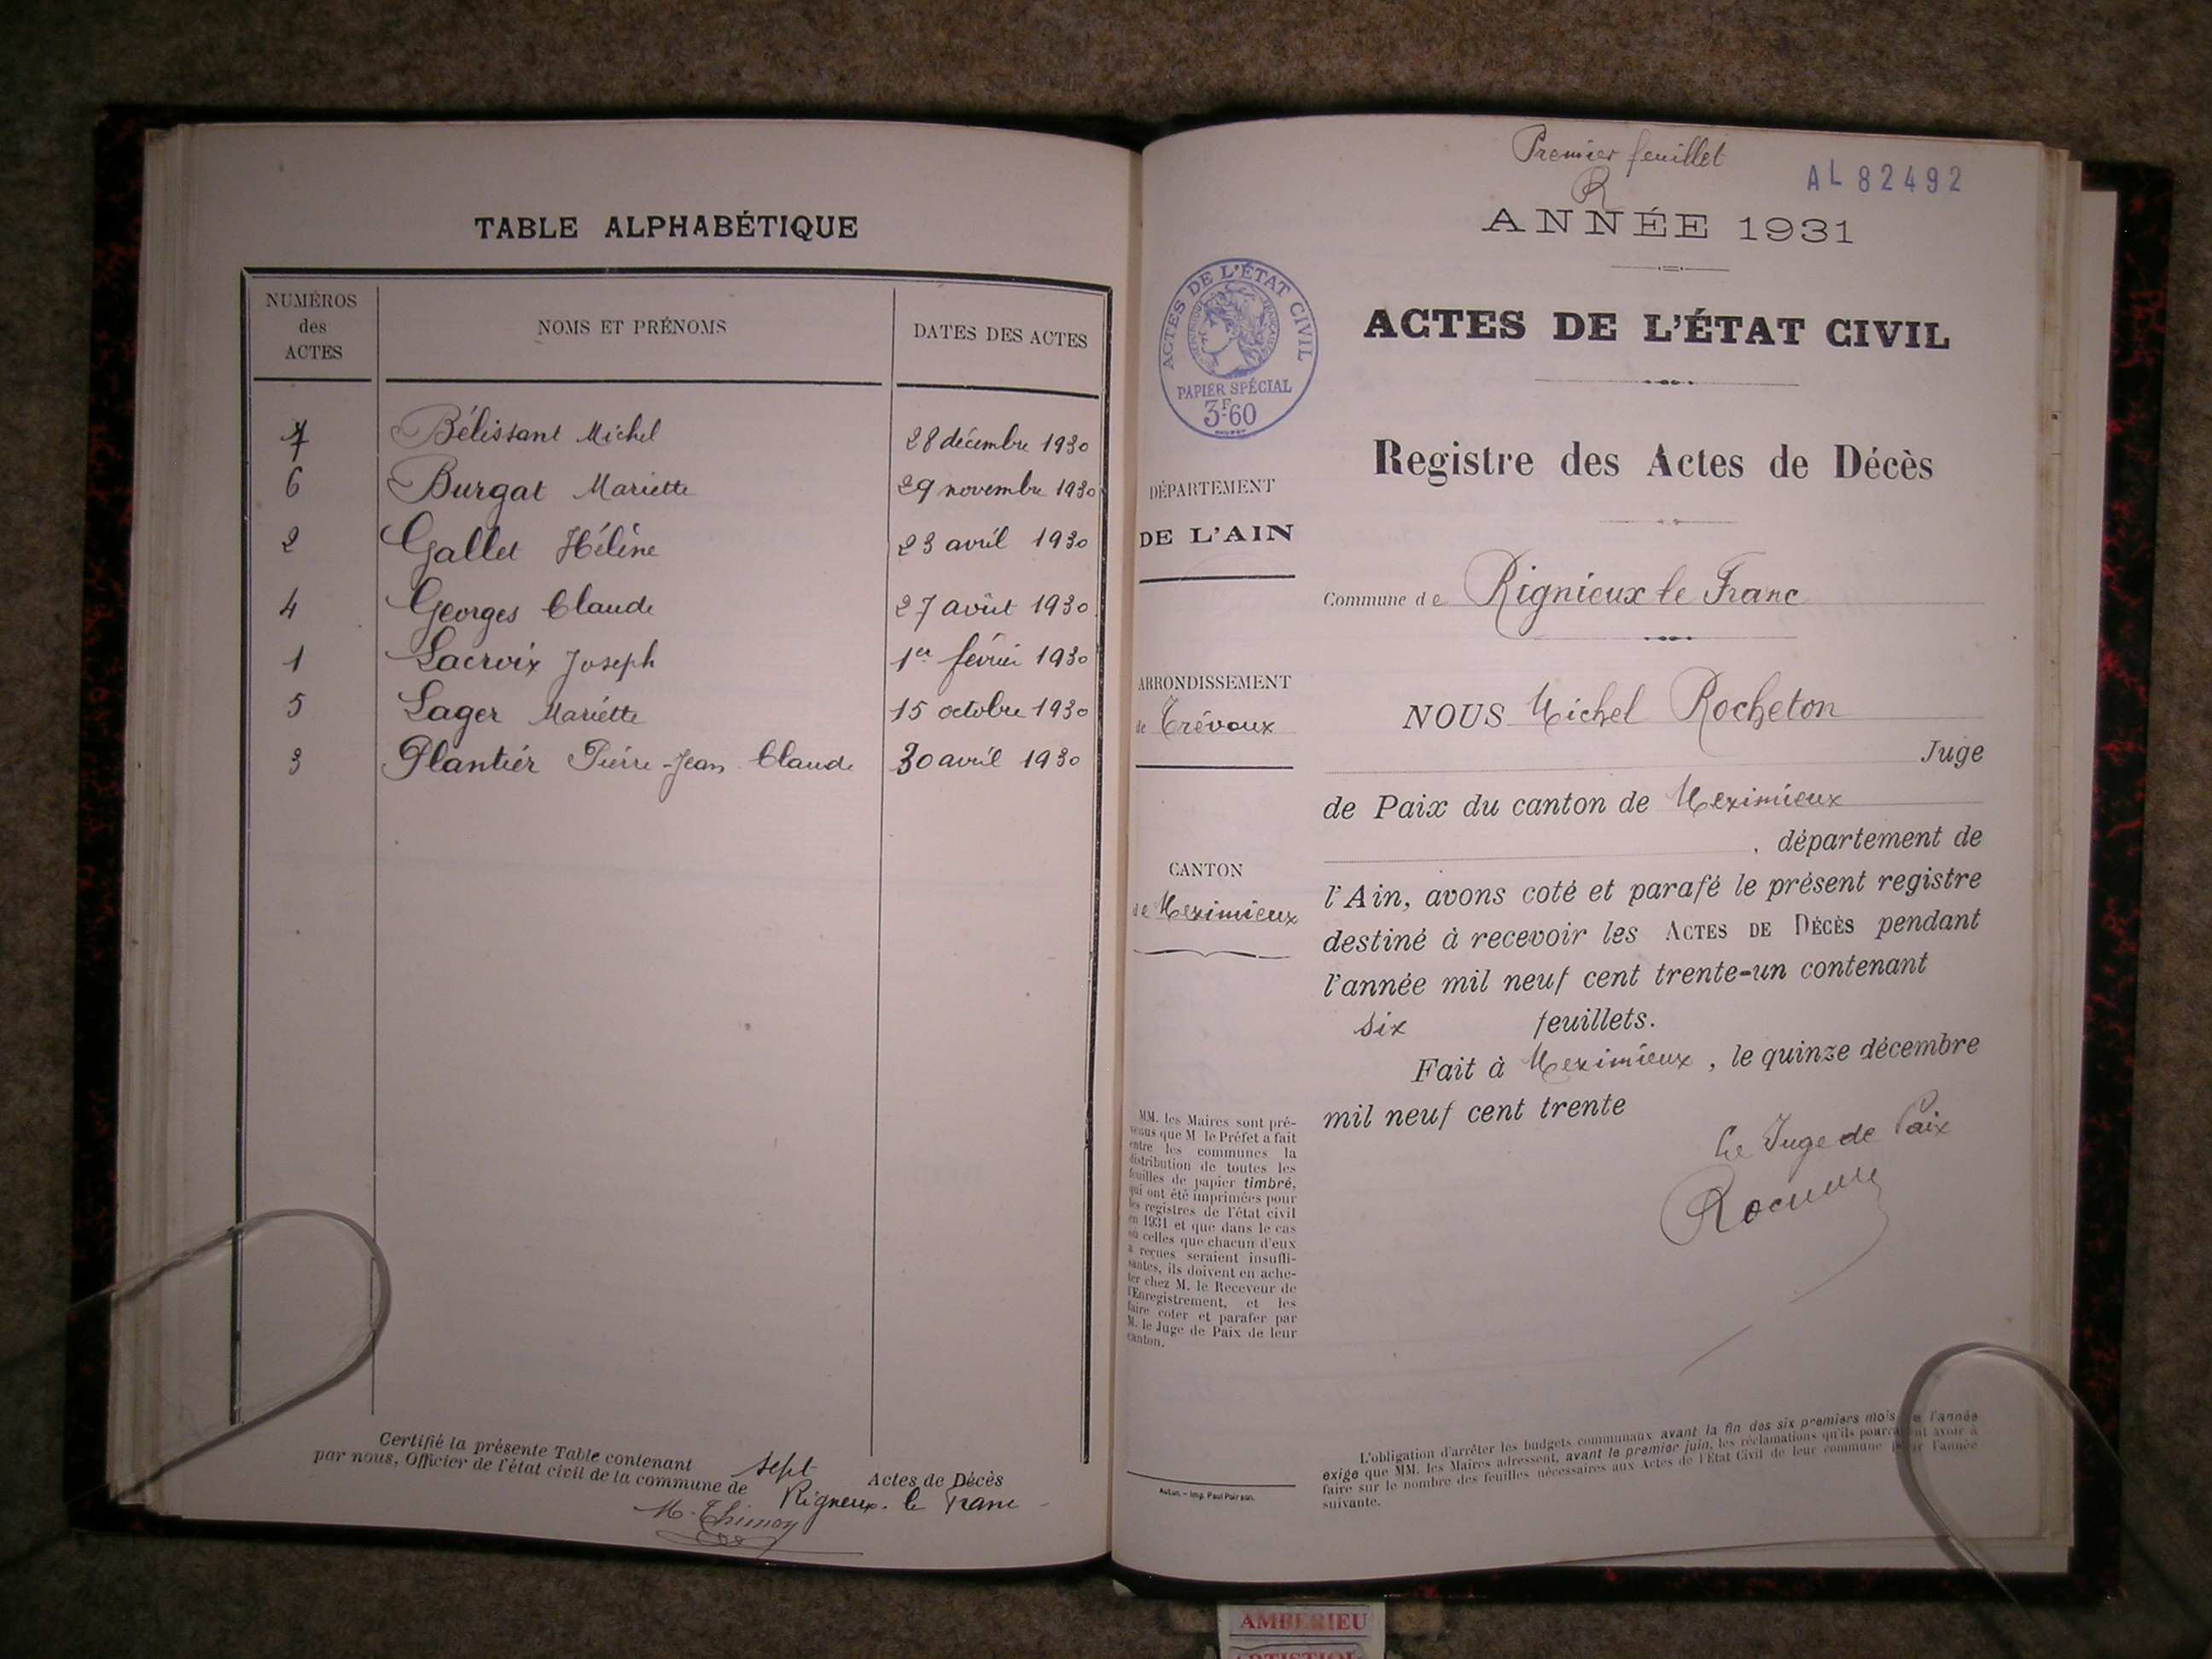 TABLE ALPHABÉTIQUE
NUMÉROS des ACTES
NOMS ET PRÉNOMS
DATES DES ACTES
7 Bélissant Michel 28 décembre 1930
6 Burgat Mariette 29 novembre 1930
2 Gallet Hélène 23 avril 1930
4 Georges Claude 27 août 1930
1 Lacroix Joseph 1er février 1930
5 Lager Mariette 15 octobre 1930
3 Plantier Pierre-Jean Claude 30 avril 1930
Certifié la présente Table contenant sept Actes de Décès
par nous, Officier de l'état civil de la commune de Rigneux-le Franc
M. Thimon
Premier feuillet
R
AL 82492
ANNÉE 1931
ACTES DE L'ÉTAT CIVIL
ACTES DE L'ÉTAT CIVIL
PAPIER SPÉCIAL
3F60
Registre des Actes de Décès
DÉPARTEMENT
DE L'AIN
Commune de Rignieux le Franc
ARRONDISSEMENT
de Trévoux
NOUS Michel Rocheton
Juge
de Paix du canton de Meximieux
, département de
CANTON
de Meximieux
l'Ain, avons coté et parafé le présent registre
destiné à recevoir les ACTES DE DÉCÈS pendant
l'année mil neuf cent trente-un contenant
six feuillets.
Fait à Meximieux, le quinze décembre
mil neuf cent trente
Le Juge de Paix
MM. les Maires sont pré-
venus que M le Préfet a fait
entre les communes la
distribution de toutes les
feuilles de papier timbré,
qui ont été imprimées pour
les registres de l'état civil
en 1931 et que dans le cas
où celles que chacun d'eux
a reçues seraient insuffi-
santes, ils doivent en ache-
ter chez M. le Receveur de
l'Enregistrement, et les
faire coter et parafer par
M. le Juge de Paix de leur
canton.
Autun. – Imp. Paul Poirson.
L'obligation d'arrêter les budgets communaux avant la fin des six premiers mois de l'année
exige que MM. les Maires adressent, avant le premier juin, les réclamations qu'ils pourraient avoir à
faire sur le nombre des feuilles nécessaires aux Actes de l'État Civil de leur commune pour l'année
suivante.
AMBERIEU